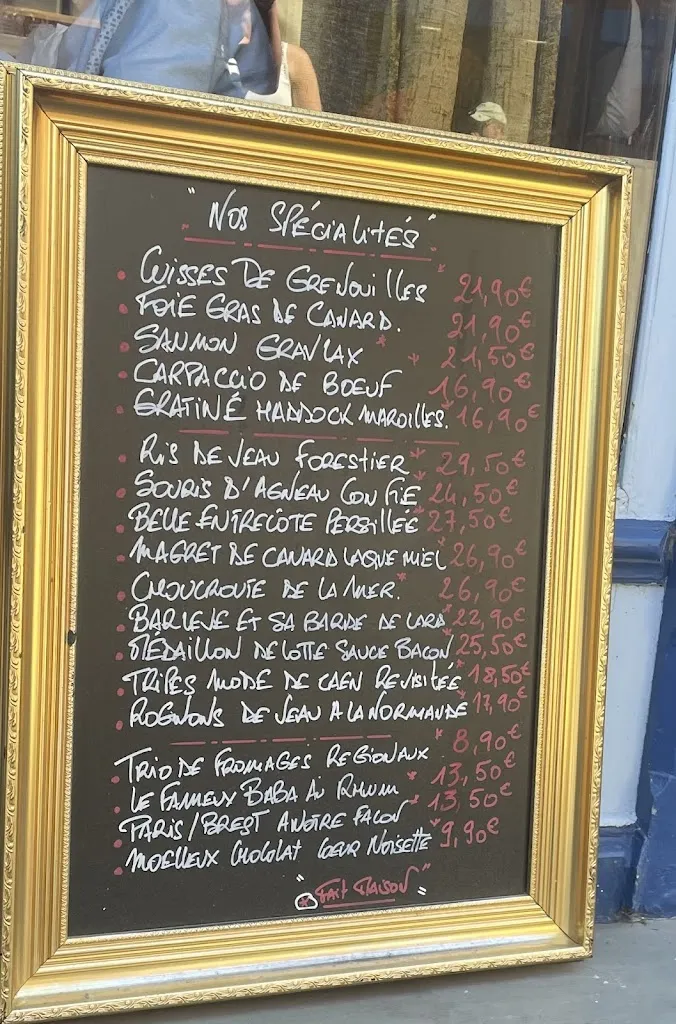 "Nos SPÉCIALITÉS"
• CUISSES DE GRENOUILLES * 21,90€
• FOIE GRAS DE CANARD. * 21,90€
• SAUMON GRAVLAX * 21,50€
• CARPACCIO DE BOEUF 16,90€
• GRATINÉ HADDOCK MAROILLES. * 16,90€
• RIS DE VEAU FORESTIER * 29,50€
• SOURIS D'AGNEAU CONFIE * 24,50€
• BELLE ENTRECÔTE PERSILLÉE * 27,50€
• MAGRET DE CANARD LAQUE MIEL * 26,90€
• CHOUCROUTE DE LA MER. * 26,90€
• BAR LEVE ET SA BARDE DE LARD * 22,90€
• MÉDAILLON DE LOTTE SAUCE BACON * 25,50€
• TRIPES MODE DE CAEN REVISITÉE * 18,50€
• ROGNONS DE VEAU A LA NORMANDE * 17,90€
• TRIO DE FROMAGES REGIONAUX * 8,90€
• LE FAMEUX BABA AU RHUM * 13,50€
• PARIS/BREST A NOTRE FACON * 13,50€
• MOELLEUX CHOCOLAT COEUR NOISETTE * 9,90€
"* FAIT MAISON"